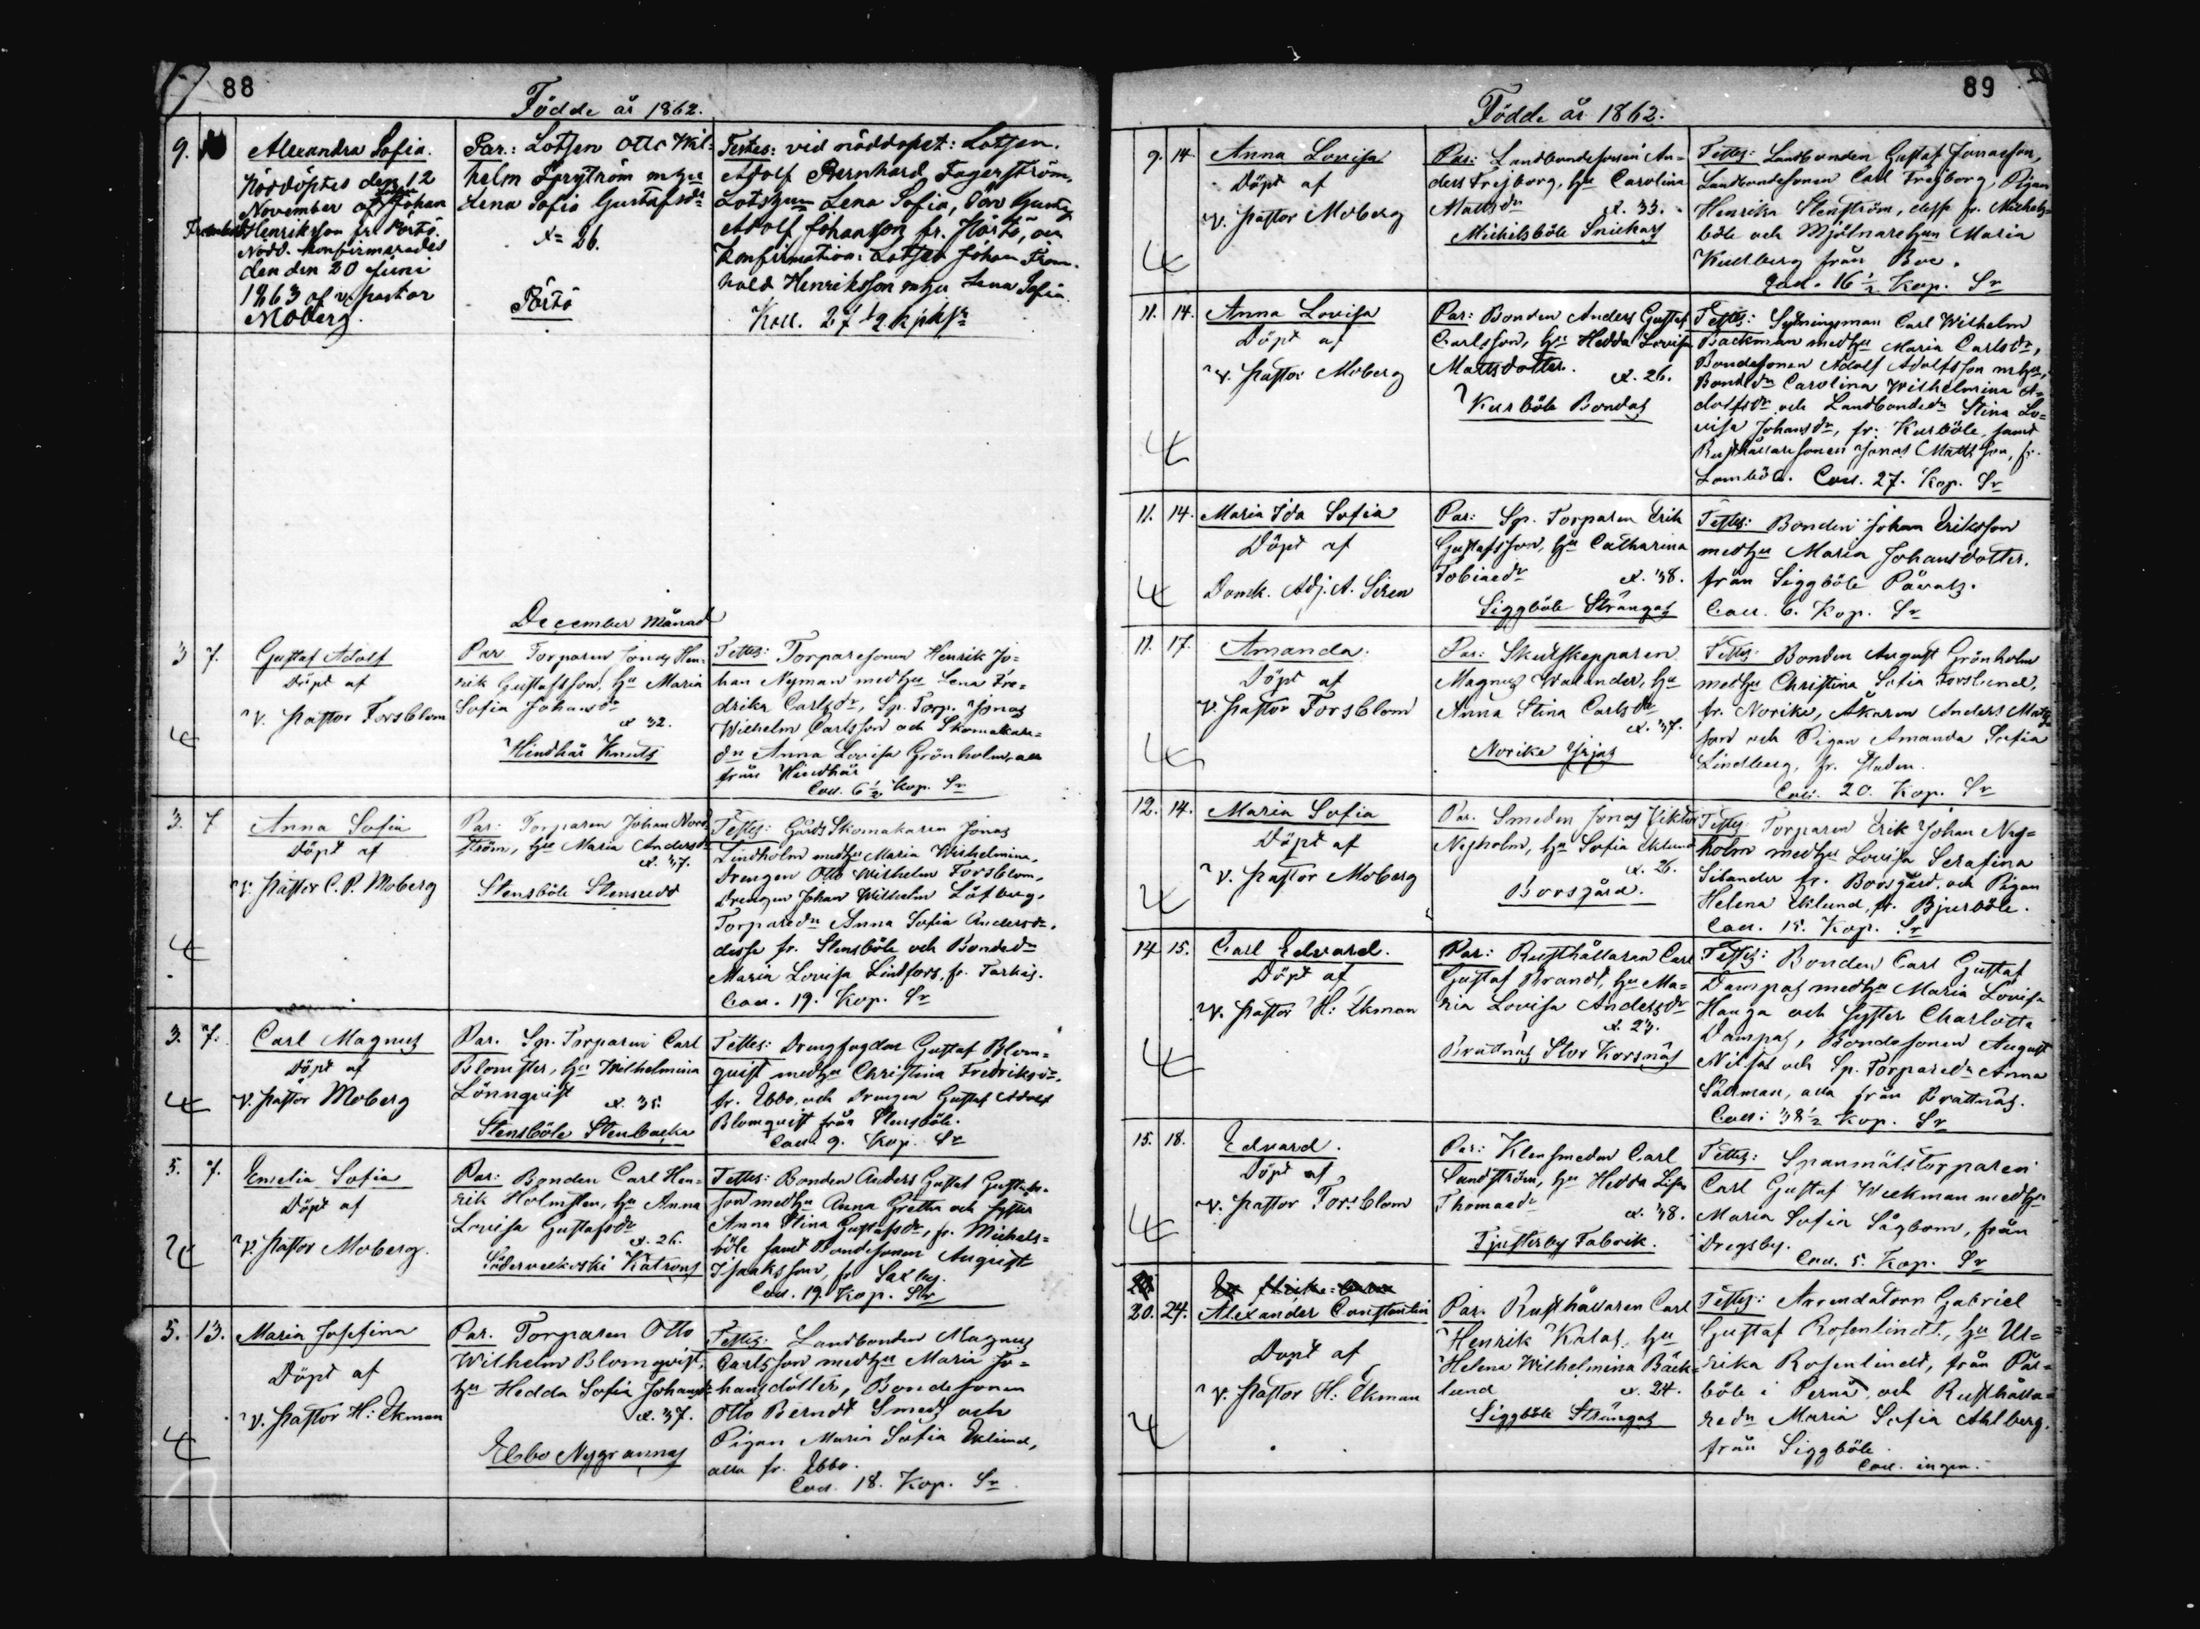 88
Födde år 1862.
9.
Alexandra Sofia.
Nöddöptes den 12
November af Johan
Henriksson fr. Pörtö.
Nödd. konfirmerades
den den 20 Juni
1863 af v. pastor
Moberg.
Par: Lotsen Otto Wil-
helm Sprytröm m hu
Lena Sofia Gustafsdr
x= 26.
Pörtö
Testes: vid nöddopet: Lotsen
Adolf Bernhard Fagerström,
Lena Sofia,
Adolf Johansson fr.
Konfirmation: Lotsen Johan
Henriksson m hu Lena Sofia.
Koll. 27 1/2 kpk Sr
December Månad
3 7.
Gustaf Adolf
Döpt af
v. Pastor Forsblom
Par Torparen Jonas Hen-
rik Gustafsson, hu Maria
Sofia Johansdr
x. 32.
Hindhår Knuts
Testes: Torparesonen Henrik Jo-
han Nyman med hu Lena Fre-
drika Carlsdr, Sp. Torp. Jonas
Wilhelm Carlsson och Skomakare-
dr Anna Lovisa Grönholm, alla
från Hindhår
Coll. 6 1/2 Kop. Sr
3. 7
Anna Sofia
Döpt af
v. Pastor C. P. Moberg
Par: Torparen Johan Nord-
ström, hu Maria Andersdr
x. 37.
Stensböle Stensredd
Testes: Gårds Skomakaren Jonas
Lindholm med hu Maria Wilhelmina,
Drengen Otto Wilhelm Forsblom,
Drengen Johan Wilhelm Löfberg,
Torparedr Anna Sofia Andersdr,
desse fr. Stensböle och Bondedr
Maria Lovisa Lindfors, fr. Tarkis.
Coll. 19. Kop. Sr
3. 7.
Carl Magnus
Döpt af
v. Pastor Moberg
Par. Sp. Torparen Carl
Blomster, hu Wilhelmina
Lönnqvist x. 35.
Stensböle Stenbacka
Testes: Drengfogden Gustaf Blom-
quist med hu Christina Fredriksdr,
fr. Ebbo, och Drengen Gustaf Adolf
Blomquist från Stensböle.
Coll. 9. Kop. Sr
5. 7.
Emelia Sofia
Döpt af
v. Pastor Moberg.
Par: Bonden Carl Hen-
rik Holmsten, hu Anna
Lovisa Gustafsdr
x. 26.
Söderveckoski Katrons
Testes: Bonden Anders Gustaf Gustafs-
son med hu Anna Gretha och syster
Anna Stina Gustafsdr, fr. Michels-
böle samt Bondesonen August
Isaksson, fr Saxby.
Coll. 19. Kop. Sr
5. 13.
Maria Josefina
Döpt af
v. Pastor H: Ekman
Par. Torparen Otto
Wilhelm Blomqvist,
hu Hedda Sofia Johansdr
x. 37.
Ebbo Nygrannas
Testes: Landbonden Magnus
Carlsson med hu Maria Jo-
hansdotter, Bondesonen
Otto Berndt Smeds och
Pigan Maria Sofia Eklund,
alla fr. Ebbo.
Coll. 18. Kop. Sr
89
Födde år 1862.
9. 14.
Anna Lovisa
Döpt af
v. Pastor Moberg
Par: Landbondesonen An-
ders Frejborg, hu Carolina
Mattsdr x. 33.
Michelsböle Snickars
Testes: Landbonden Gustaf Jonasson,
Landbondesonen Carl Frejborg, Pigan
Henrika Stenström, desse fr. Michels-
böle och Mjölnarehun Maria
Kullberg från Boe.
Coll. 16 1/2 Kop. Sr
11. 14.
Anna Lovisa
Döpt af
v. Pastor Moberg
Par: Bonden Anders Gustaf
Carlsson, hu Hedda Lovisa
Mattsdotter. x. 26.
Kurböle Bondas
Testes: Sytningsman Carl Wilhelm
Backman med hu Maria Carlsdr,
Bondesonen Adolf Adolfsson m hu,
Bondedr Carolina Wilhelmina A-
dolfsdr och Landbondedr Stina Lo-
visa Johansdr, fr. Kurböle, samt
Rusthållaresonen Jonas Mattsson, fr.
Lomböle. Coll. 27. Kop. Sr
11. 14.
Maria Ida Sofia
Döpt af
Domk. Adj. A. Siren
Par: Sp. Torparen Erik
Gustafsson, hu Catharina
Tobiaedr x. 38.
Siggböle Strängas
Testes: Bonden Johan Eriksson
med hu Maria Johansdotter,
från Siggböle Påvals.
Coll. 6. Kop. Sr
11. 17.
Amanda.
Döpt af
v. Pastor Forsblom
Par: Skutskepparen
Magnus Walander, hu
Anna Stina Carlsdr
x. 37.
Norike Yrjas
Testes: Bonden August Grönholm
med hu Christina Sofia Forslund,
fr. Norike, Åkaren Anders Mats-
son och Pigan Amanda Sofia
Lindberg, fr. Staden.
Coll. 20. Kop. Sr
12. 14.
Maria Sofia
Döpt af
v. Pastor Moberg
Par. Smeden Jonas Viktor
Nyholm, hu Sofia Eklund
x. 26.
Borsgård.
Testes Torparen Erik Johan Ny-
holm med hu Lovisa Serafina
Silander fr. Borsgård, och Pigan
Helena Eklund, fr. Bjurböle.
Coll. 15. Kop. Sr
14 15.
Carl Edvard.
Döpt af
v. Pastor H: Ekman
Par: Rusthållaren Carl
Gustaf Brandt, hu Ma-
ria Lovisa Andersdr
x. 23.
Kråttnäs Stor Korsnäs
Testes: Bonden Carl Gustaf
Dampas med hu Maria Lovisa
Hauga och syster Charlotta
Dampas, Bondesonen August
Nissas och Sp. Torparedr Anna
Sallman, alla från Kråttnäs.
Coll: 38 1/2 Kop. Sr
15. 18.
Edvard.
Döpt af
v. Pastor Forsblom
Par: Klensmeden Carl
Sandström, hu Hedda Lisa
Thomasdr x. 38.
Tjusterby Fabrik.
Testes: Spanmålstorparen
Carl Gustaf Weckman med hu
Maria Sofia Sågbom, från
Dregsby.
Coll. 5. Kop. Sr
20. 24.
Alexander Constantin
Döpt af
v. Pastor H: Ekman
Par. Rusthållaren Carl
Henrik Kalas, hu
Helena Wilhelmina Bäck-
lund x. 24.
Siggböle Strängas
Testes: Arrendatorn Gabriel
Gustaf Rosenlindt, hu Ul-
rika Rosenlindt, från Pär-
böle i Pernå, och Rusthålla-
redr Maria Sofia Ahlberg,
från Siggböle.
Coll. ingen.